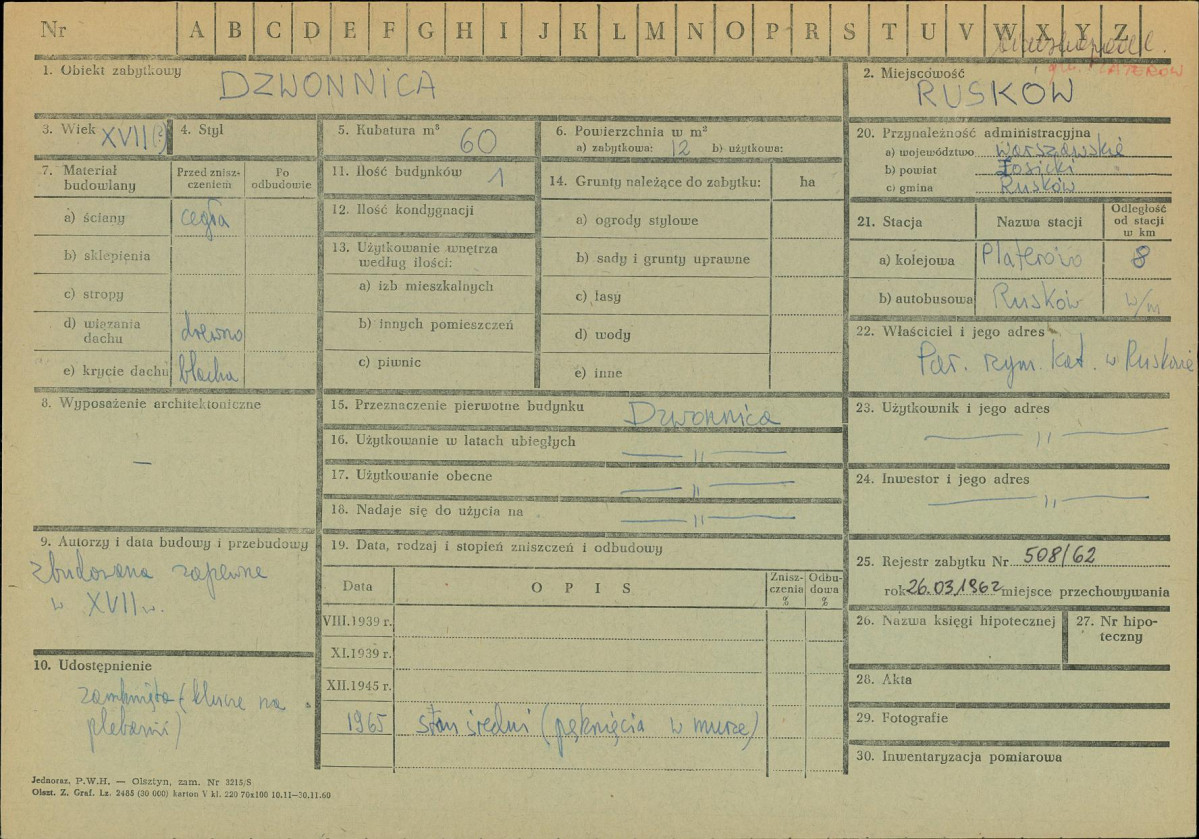 Nr A B C D E F G H I J K L M N O P R S T U V W X Y Z
gm. PLATERÓW
1. Obiekt zabytkowy
DZWONNICA
2. Miejscowość
RUSKÓW
3. Wiek XVII(?)
4. Styl
5. Kubatura m³ 60
6. Powierzchnia w m²
a) zabytkowa: 12 b) użytkowa:
7. Materiał budowlany
Przed zniszczeniem
Po odbudowie
a) ściany cegła
b) sklepienia
c) stropy
d) wiązania dachu drewno
e) krycie dachu blacha
8. Wyposażenie architektoniczne
—
9. Autorzy i data budowy i przebudowy
zbudowana zapewne
w XVII w.
10. Udostępnienie
zamknięta (klucze na
plebanii)
11. Ilość budynków 1
12. Ilość kondygnacji
13. Użytkowanie wnętrza
według ilości:
a) izb mieszkalnych
b) innych pomieszczeń
c) piwnic
14. Grunty należące do zabytku: ha
a) ogrody stylowe
b) sady i grunty uprawne
c) lasy
d) wody
e) inne
15. Przeznaczenie pierwotne budynku Dzwonnica
16. Użytkowanie w latach ubiegłych — „ —
17. Użytkowanie obecne — „ —
18. Nadaje się do użycia na — „ —
19. Data, rodzaj i stopień zniszczeń i odbudowy
Data OPIS Zniszczenia % Odbudowa %
VIII.1939 r.
XI.1939 r.
XII.1945 r.
1965 stan średni (pęknięcia w murze)
20. Przynależność administracyjna
a) województwo warszawskie
b) powiat Łosicki
c) gmina Rusków
21. Stacja Nazwa stacji Odległość od stacji w km
a) kolejowa Platerów 8
b) autobusowa Rusków w/m
22. Właściciel i jego adres
Par. rzym. kat. w Ruskowie
23. Użytkownik i jego adres
— „ —
24. Inwestor i jego adres
— „ —
25. Rejestr zabytku Nr 508/62
rok 26.03.1962 miejsce przechowywania
26. Nazwa księgi hipotecznej
27. Nr hipoteczny
28. Akta
29. Fotografie
30. Inwentaryzacja pomiarowa
Jednoraz. P.W.H. — Olsztyn, zam. Nr 3215/S
Olszt. Z. Graf. Lz. 2485 (30 000) karton V kl. 220 70x100 10.11—30.11.60